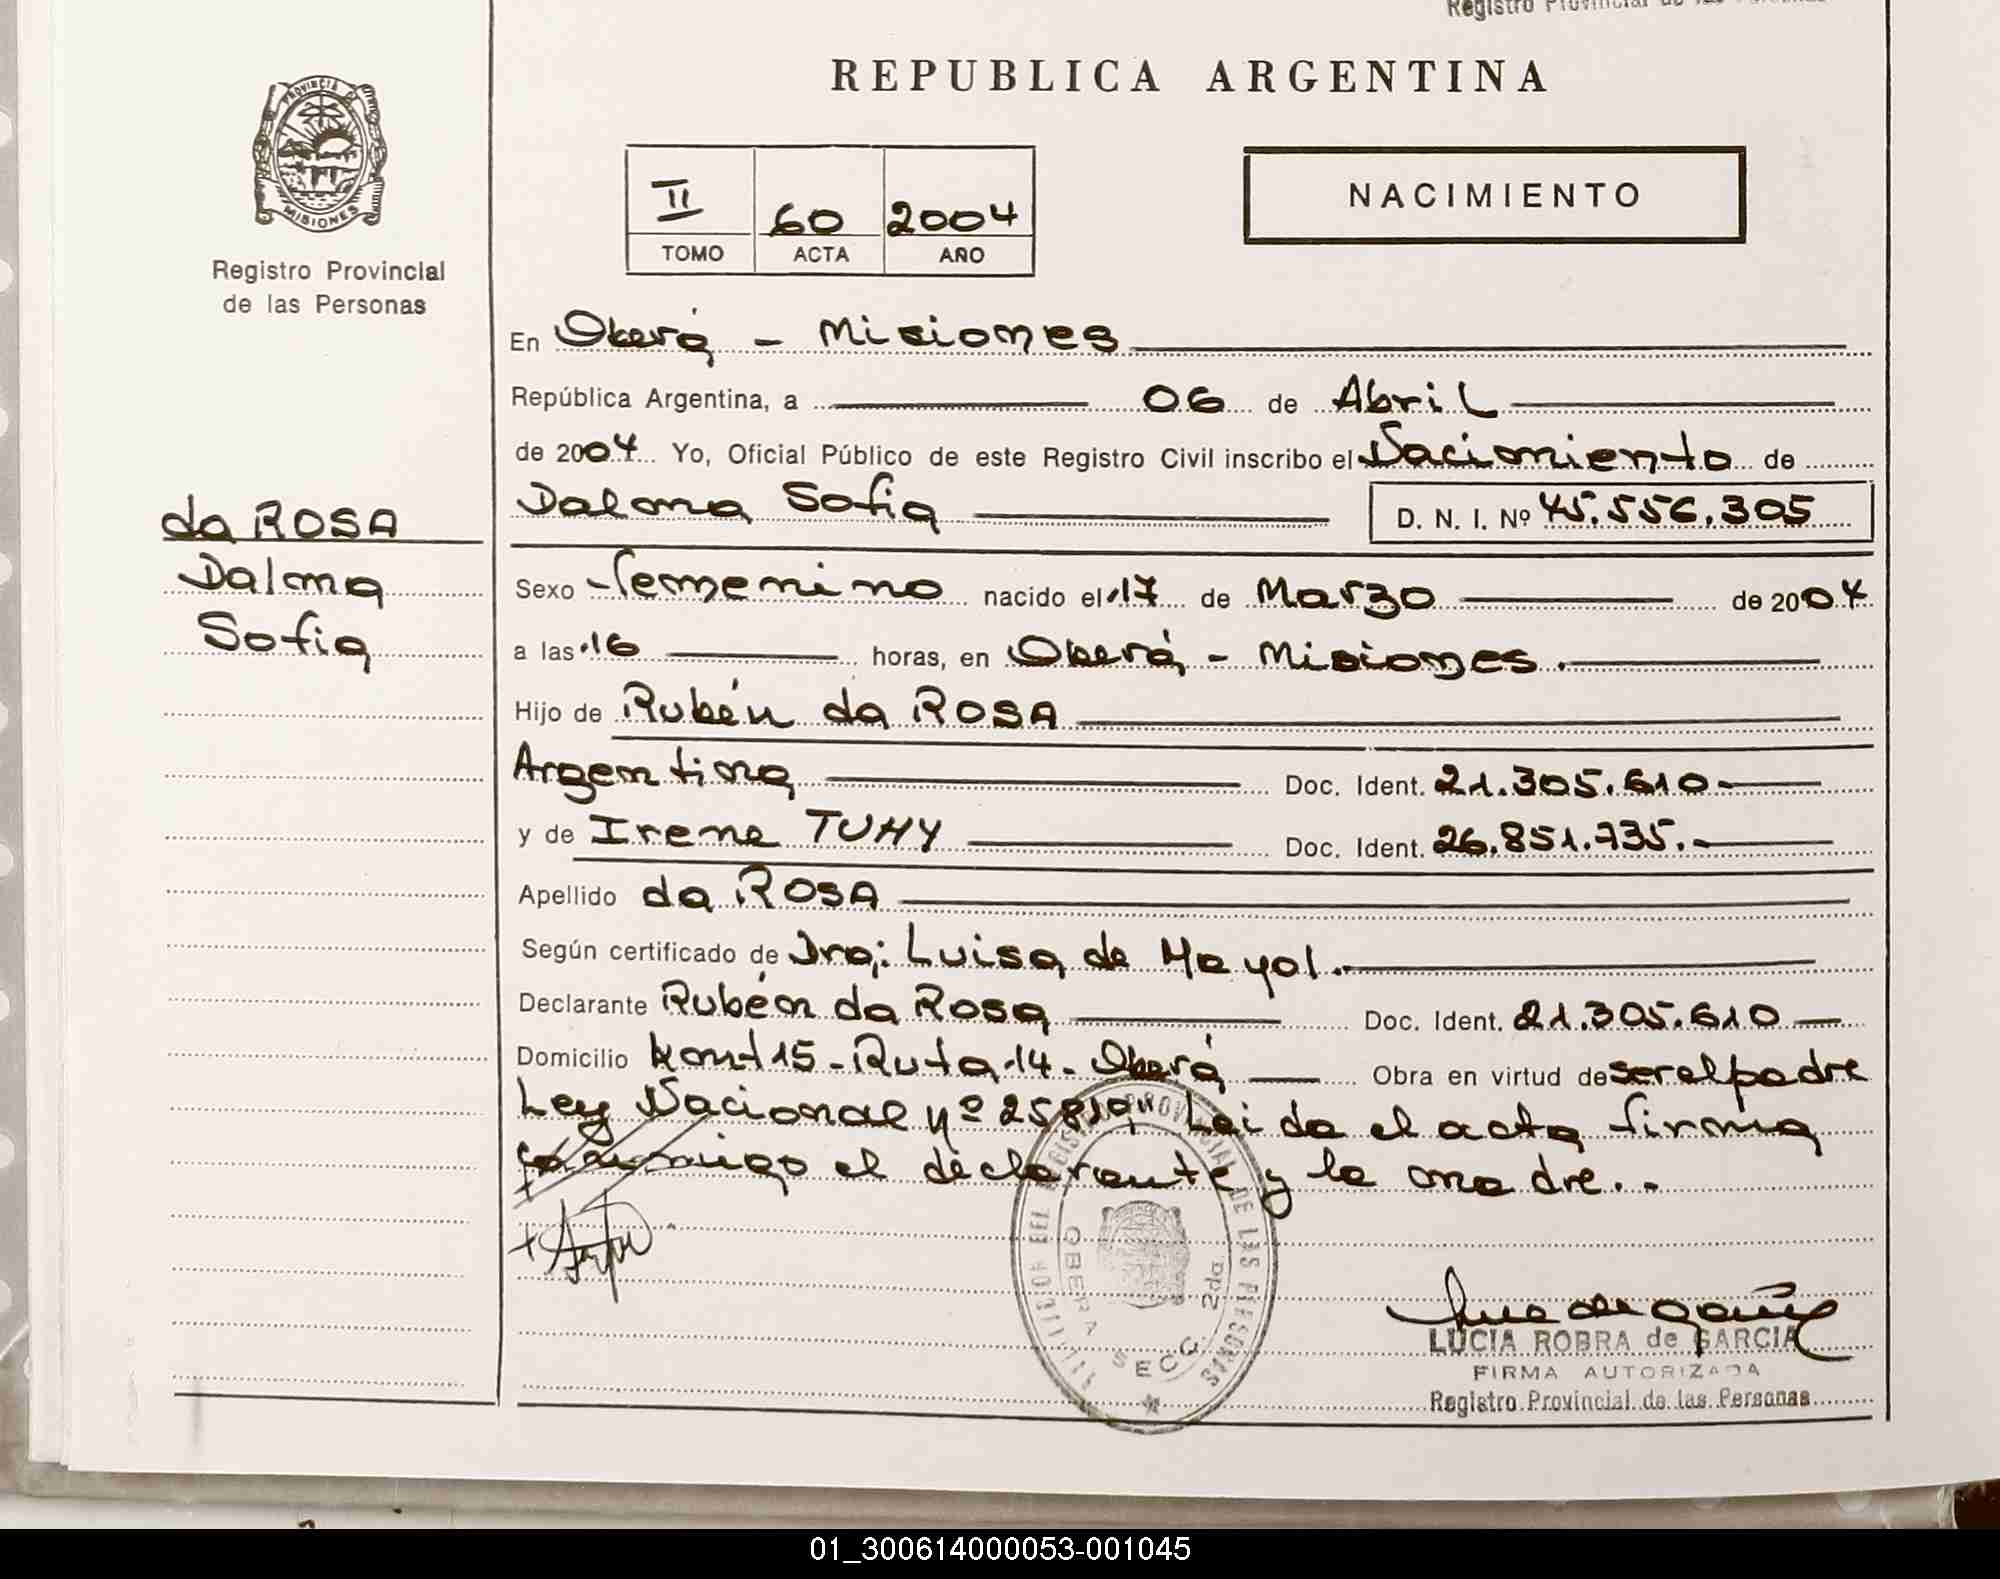 Registro Provincial de las Personas
REPUBLICA ARGENTINA
PROVINCIA DE
MISIONES
Registro Provincial
de las Personas
II 60 2004
TOMO ACTA AÑO
NACIMIENTO
En Oberá - Misiones
República Argentina, a 06 de Abril
de 2004 Yo, Oficial Público de este Registro Civil inscribo el Nacimiento de
Dalma Sofia D. N. I. Nº 45.556.305
da ROSA
Dalma
Sofia
Sexo Femenino nacido el 17 de Marzo de 2004
a las 16 horas, en Oberá - Misiones.
Hijo de Rubén da ROSA
Argentina Doc. Ident. 21.305.610-
y de Irene TUHY Doc. Ident. 26.851.735.-
Apellido da ROSA
Según certificado de Dra: Luisa de Mayol.-
Declarante Rubén da Rosa Doc. Ident. 21.305.610-
Domicilio Kmt 15 - Ruta 14 - Oberá Obra en virtud de ser el padre
Ley Nacional nº 25819" Leida el acta firma
conmigo el declarante y la madre..-
DEL REGISTRO PROVINCIAL DE LAS PERSONAS
OBERA SECC. 2da
LUCIA ROBRA de GARCIA
FIRMA AUTORIZADA
Registro Provincial de las Personas
01_300614000053-001045